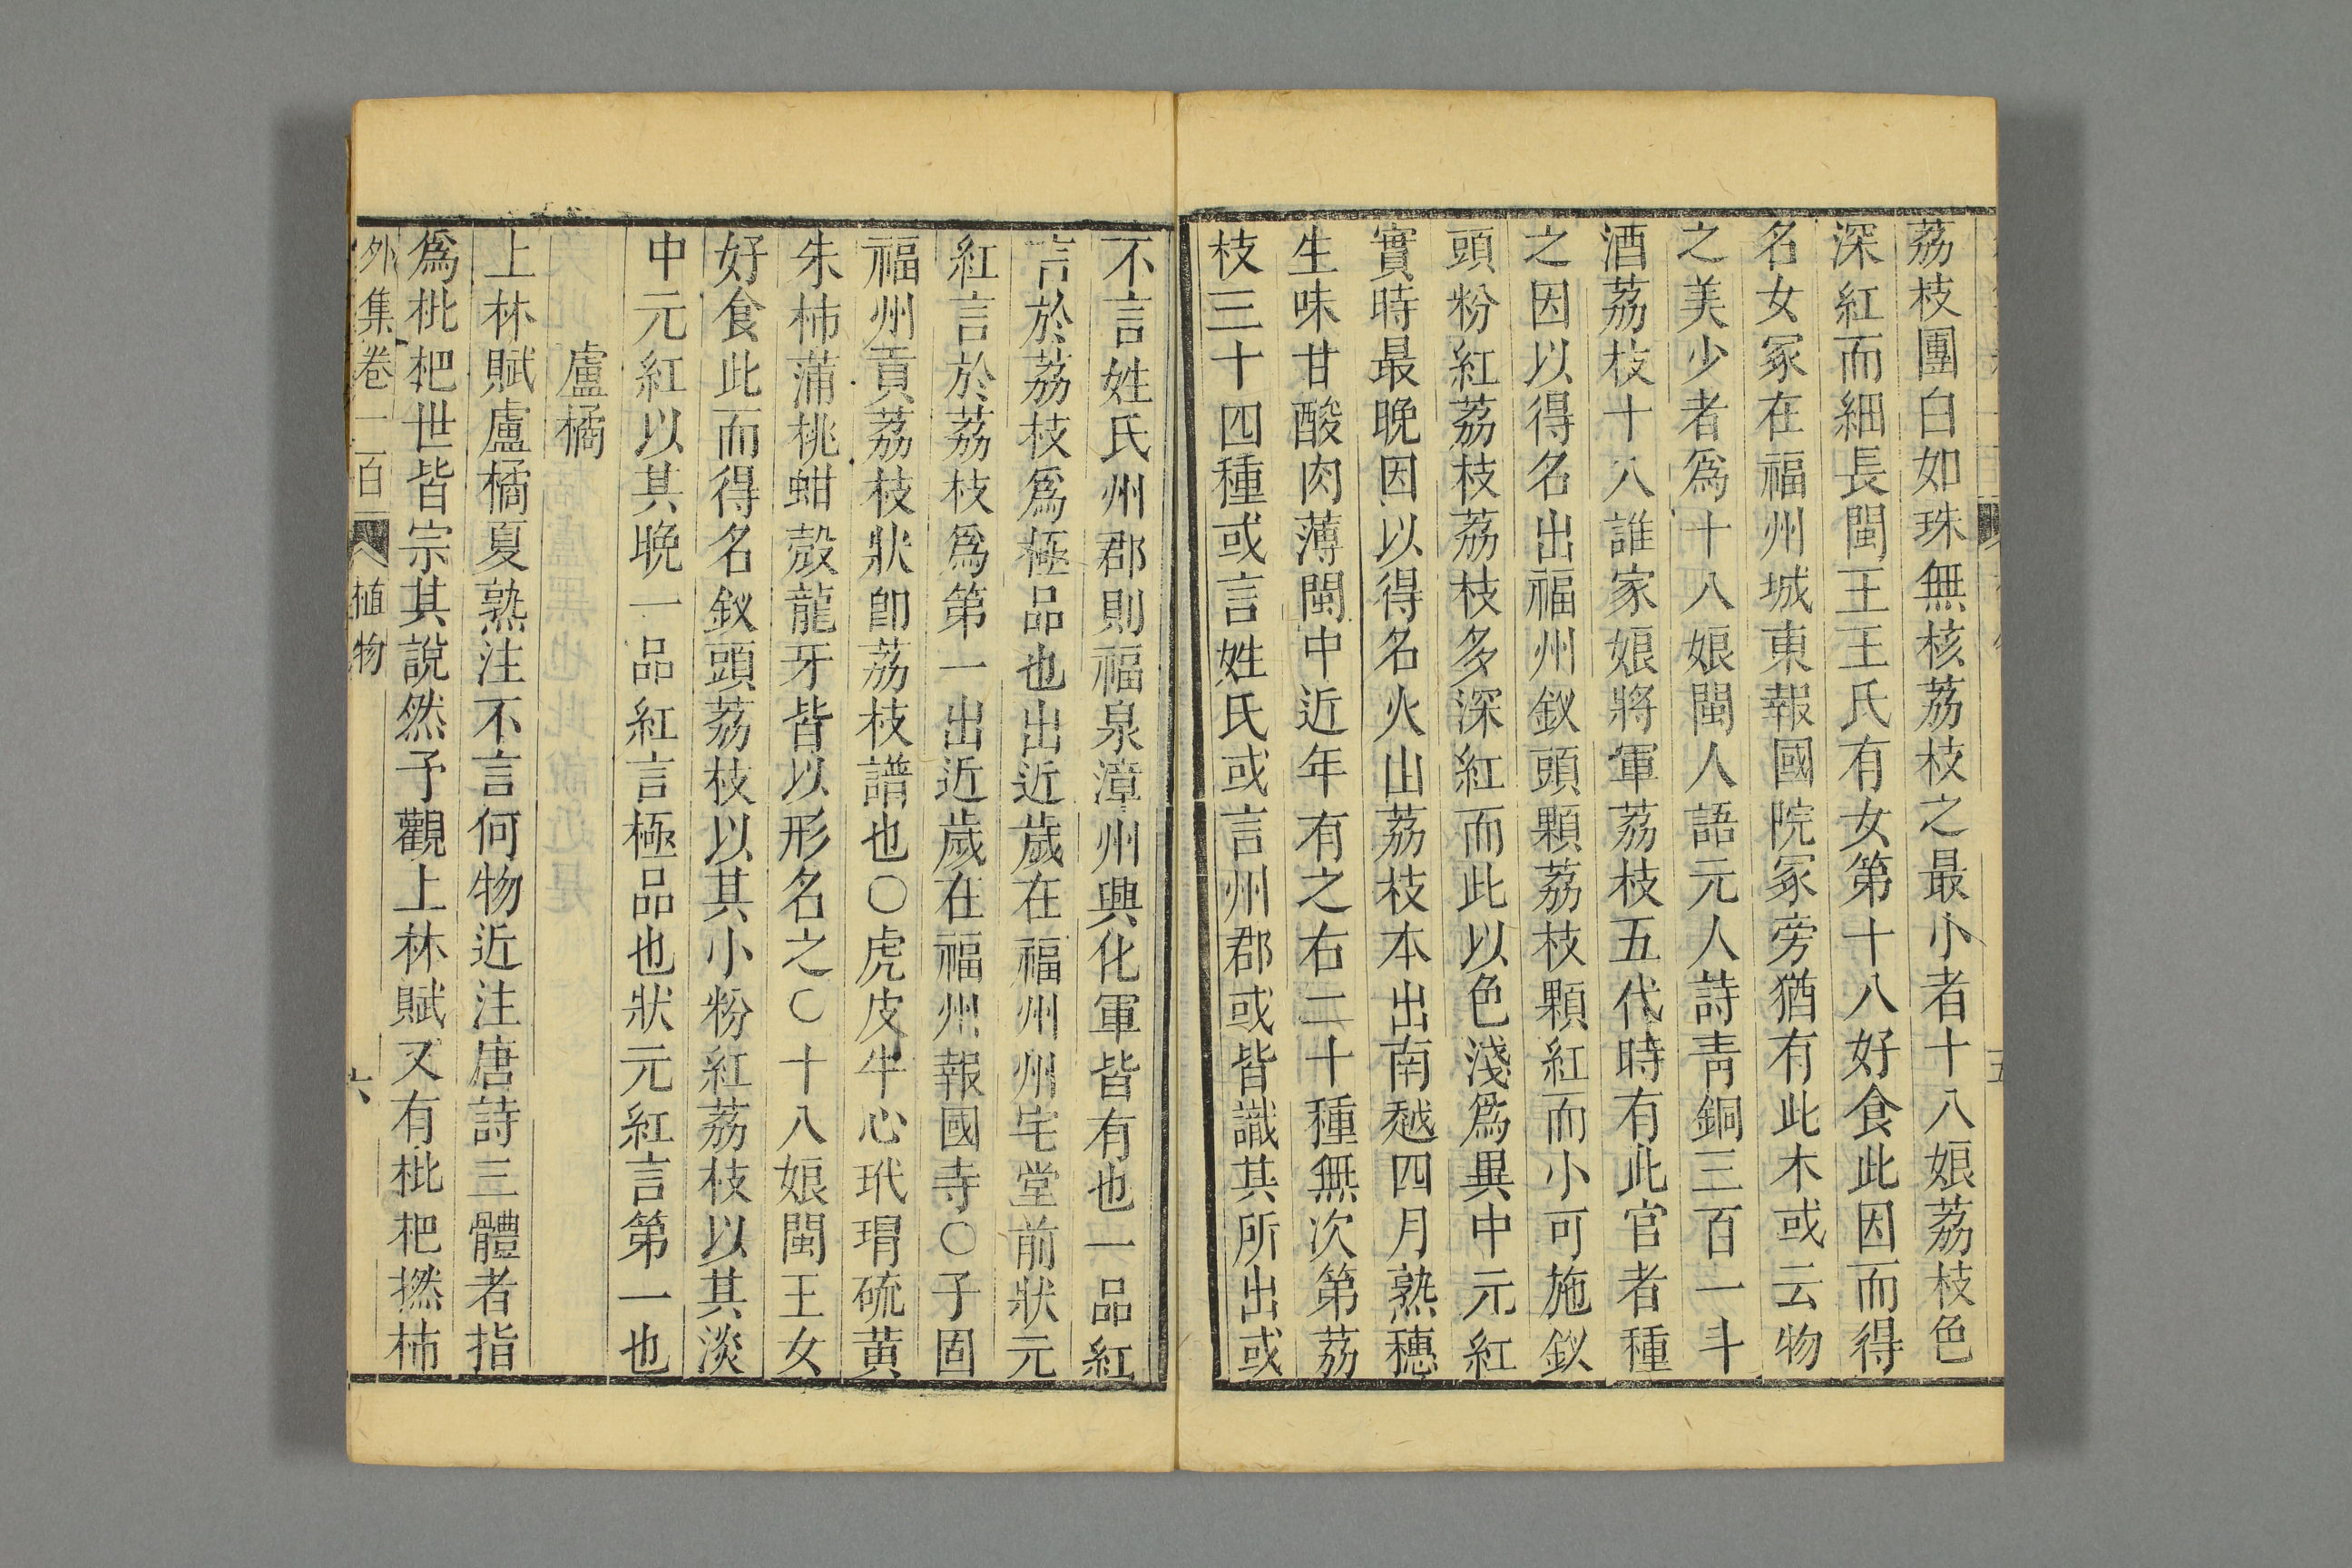 荔枝團白如珠無核荔枝之最小者十八娘荔枝色
深紅而細長閩王王氏有女第十八好食此因而得
名女冢在福州城東報國院冢旁猶有此木或云物
之美少者爲十八娘閩人語元人詩青銅三百一斗
酒荔枝十八誰家娘將軍荔枝五代時有此官者種
之因以得名出福州釵頭顆荔枝顆紅而小可施釵
頭粉紅荔枝荔枝多深紅而此以色淺爲異中元紅
實時最晚因以得名火山荔枝本出南越四月熟穗
生味甘酸肉薄閩中近年有之右二十種無次第荔
枝三十四種或言姓氏或言州郡或皆識其所出或
不言姓氏州郡則福泉漳州興化軍皆有也一品紅
言於荔枝爲極品也出近歲在福州州宅堂前狀元
紅言於荔枝爲第一出近歲在福州報國寺○子固
福州貢荔枝狀卽荔枝譜也○虎皮牛心玳瑁硫黃
朱柹蒲桃蚶殼龍牙皆以形名之○十八娘閩王女
好食此而得名釵頭荔枝以其小粉紅荔枝以其淡
中元紅以其晚一品紅言極品也狀元紅言第一也
盧橘
上林賦盧橘夏熟注不言何物近注唐詩三體者指
爲枇杷世皆宗其說然予觀上林賦又有枇杷撚柹
外集卷一百一 植物 六